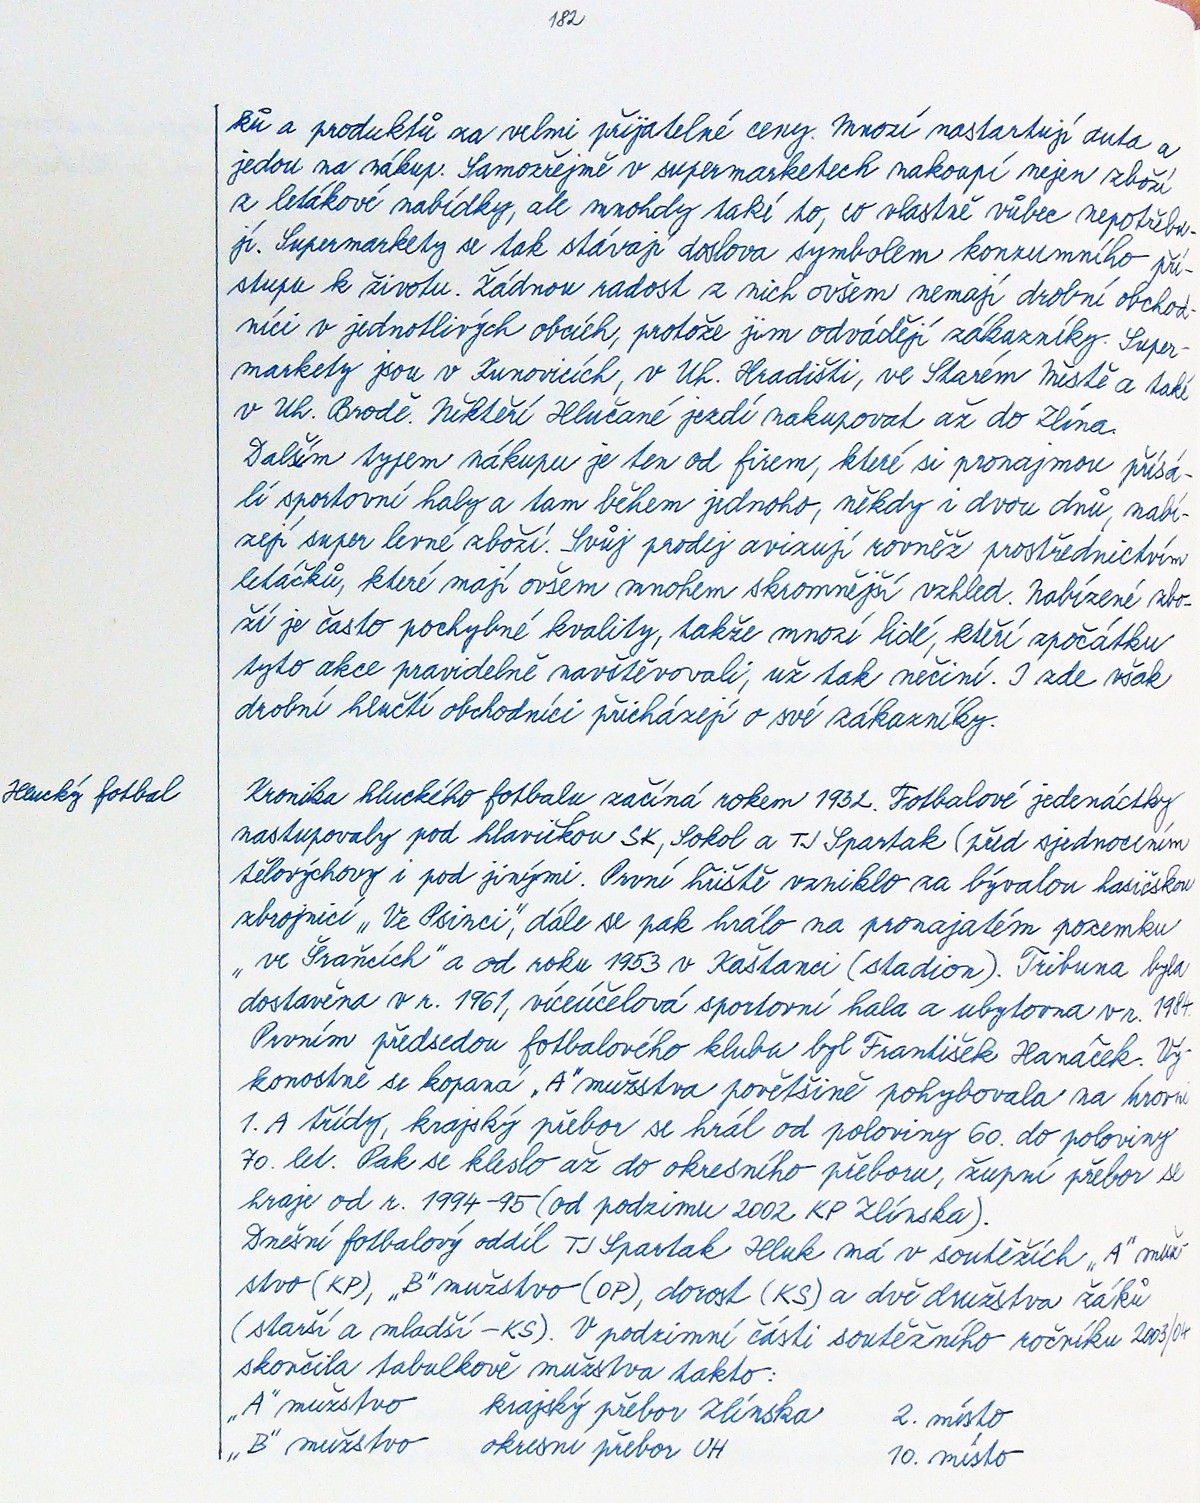 182
ků a produktů za velmi přijatelné ceny. Mnozí nastartují auta a
jedou na nákup. Samozřejmě v supermarketech nakoupí nejen zboží
z letákové nabídky, ale mnohdy také to, co vlastně vůbec nepotřebu-
jí. Supermarkety se tak stávají doslova symbolem konzumního pří-
stupu k životu. Žádnou radost z nich ovšem nemají drobní obchod-
níci v jednotlivých obcích, protože jim odvádějí zákazníky. Super-
markety jsou v Kunovicích, v Uh. Hradišti, ve Starém Městě a také
v Uh. Brodě. Někteří Hlučané jezdí nakupovat až do Zlína.
Dalším typem nákupu je ten od firem, které si pronajmou přísá-
lí sportovní haly a tam během jednoho, někdy i dvou dnů, nabí-
zejí super levné zboží. Svůj prodej avizují rovněž prostřednictvím
letáčků, které mají ovšem mnohem skromnější vzhled. Nabízené zbo-
ží je často pochybné kvality, takže mnozí lidé, kteří zpočátku
tyto akce pravidelně navštěvovali, už tak nečiní. I zde však
drobní hlučtí obchodníci přicházejí o své zákazníky.
Hlucký fotbal
Kronika hluckého fotbalu začíná rokem 1932. Fotbalové jedenáctky
nastupovaly pod hlavičkou SK, Sokol a TJ Spartak (před sjednocením
tělovýchovy i pod jinými. První hřiště vzniklo za bývalou hasičskou
zbrojnicí „Ve Psinci", dále se pak hrálo na pronajatém pozemku
„ve Šraňcích" a od roku 1953 v Kaštanci (stadion). Tribuna byla
dostavěna v r. 1961, víceúčelová sportovní hala a ubytovna v r. 1984.
Prvním předsedou fotbalového klubu byl František Hanáček. Vý-
konostně se kopaná „A" mužstva povětšině pohybovala na úrovni
1. A třídy, krajský přebor se hrál od poloviny 60. do poloviny
70. let. Pak se kleslo až do okresního přeboru, župní přebor se
hraje od r. 1994-95 (od podzimu 2002 KP Zlínska).
Dnešní fotbalový oddíl TJ Spartak Hluk má v soutěžích „A" muž-
stvo (KP), „B" mužstvo (OP), dorost (KS) a dvě družstva žáků
(starší a mladší - KS). V podzimní části soutěžního ročníku 2003/04
skončila tabulkově mužstva takto:
„A" mužstvo krajský přebor Zlínska 2. místo
„B" mužstvo okresní přebor UH 10. místo